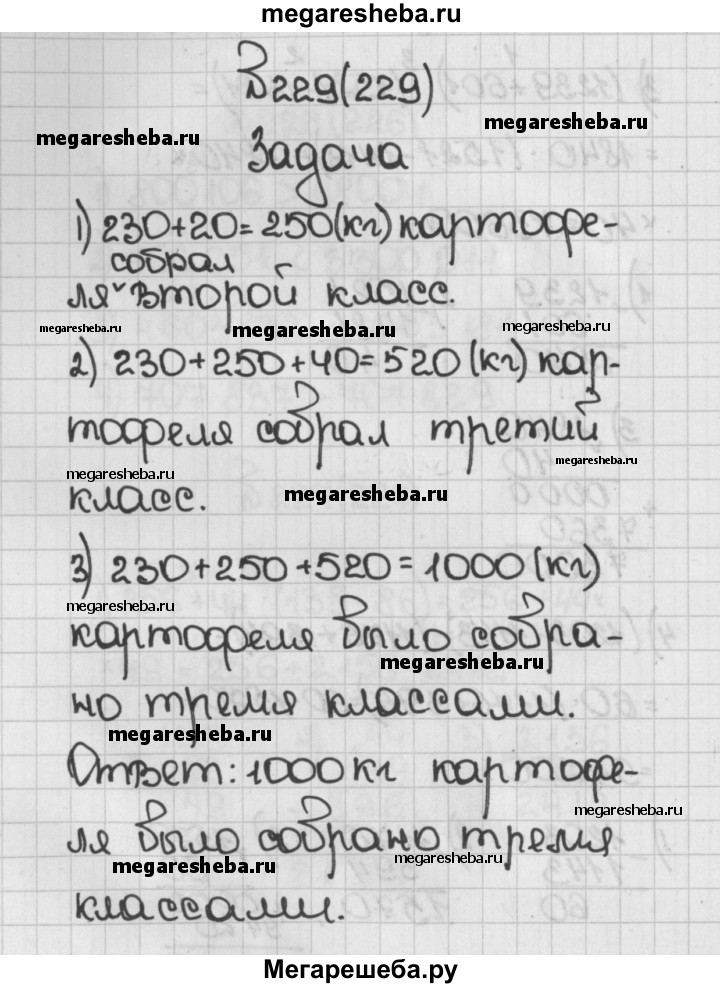 megaresheba.ru
№229(229)
megaresheba.ru
megaresheba.ru
Задача
1) 230+20=250(кг) картофе-
собрал
ля ˅ второй класс.
megaresheba.ru
megaresheba.ru
megaresheba.ru
2) 230+250+40=520(кг) кар-
тофеля собрал третий
megaresheba.ru
megaresheba.ru
класс.
megaresheba.ru
3) 230+250+520=1000(кг)
megaresheba.ru
картофеля было собра-
megaresheba.ru
но тремя классами.
megaresheba.ru
Ответ: 1000 кг картофе-
megaresheba.ru
ля было собрано тремя
megaresheba.ru
megaresheba.ru
классами.
Мегарешеба.ру